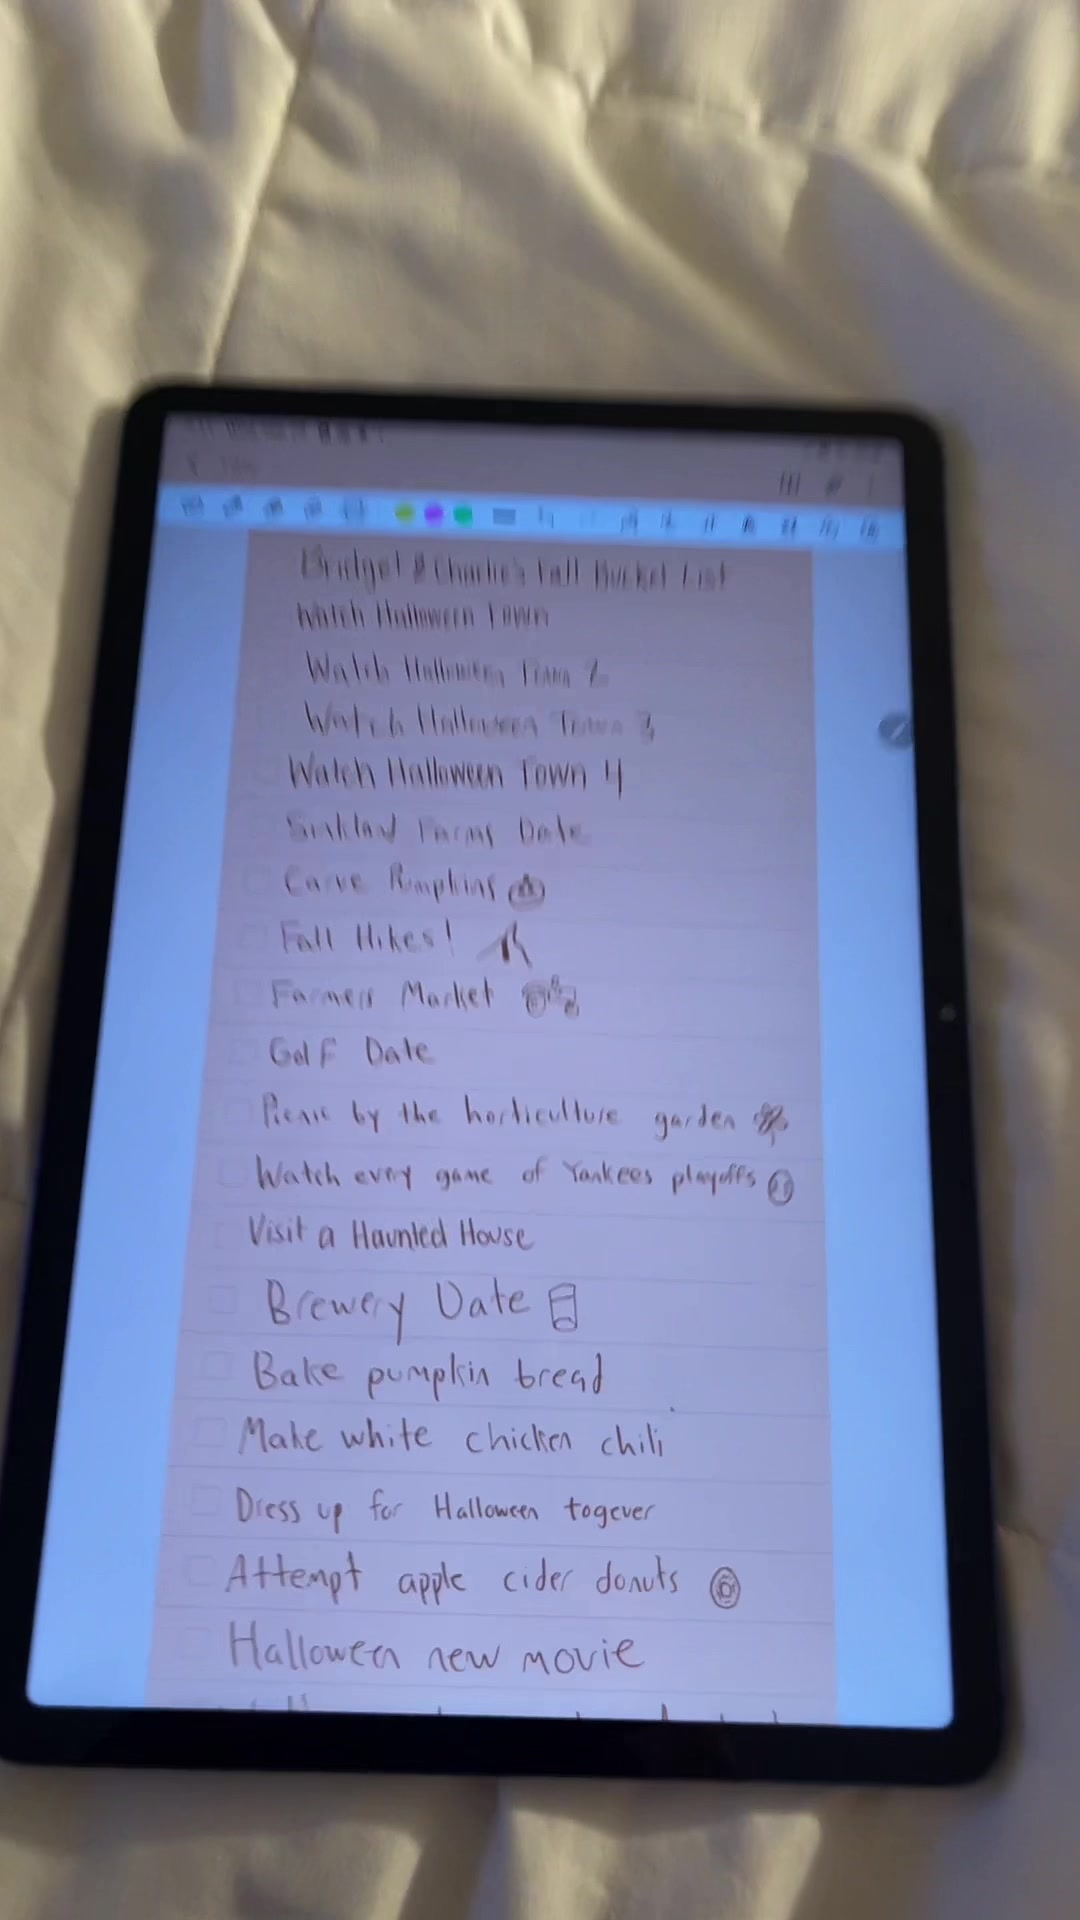 Bridget & Charlie's Fall Bucket List
Watch Halloween Town
Watch Halloween Town 2
Watch Halloween Town 3
Watch Halloween Town 4
Farms Date
Carve Pumpkins
Fall Hikes!
Farmers Market
Golf Date
Picnic by the horticulture garden
Watch every game of Yankees playoffs
Visit a Haunted House
Brewery Date
Bake pumpkin bread
Make white chicken chili
Dress up for Halloween togever
Attempt apple cider donuts
Halloween new movie